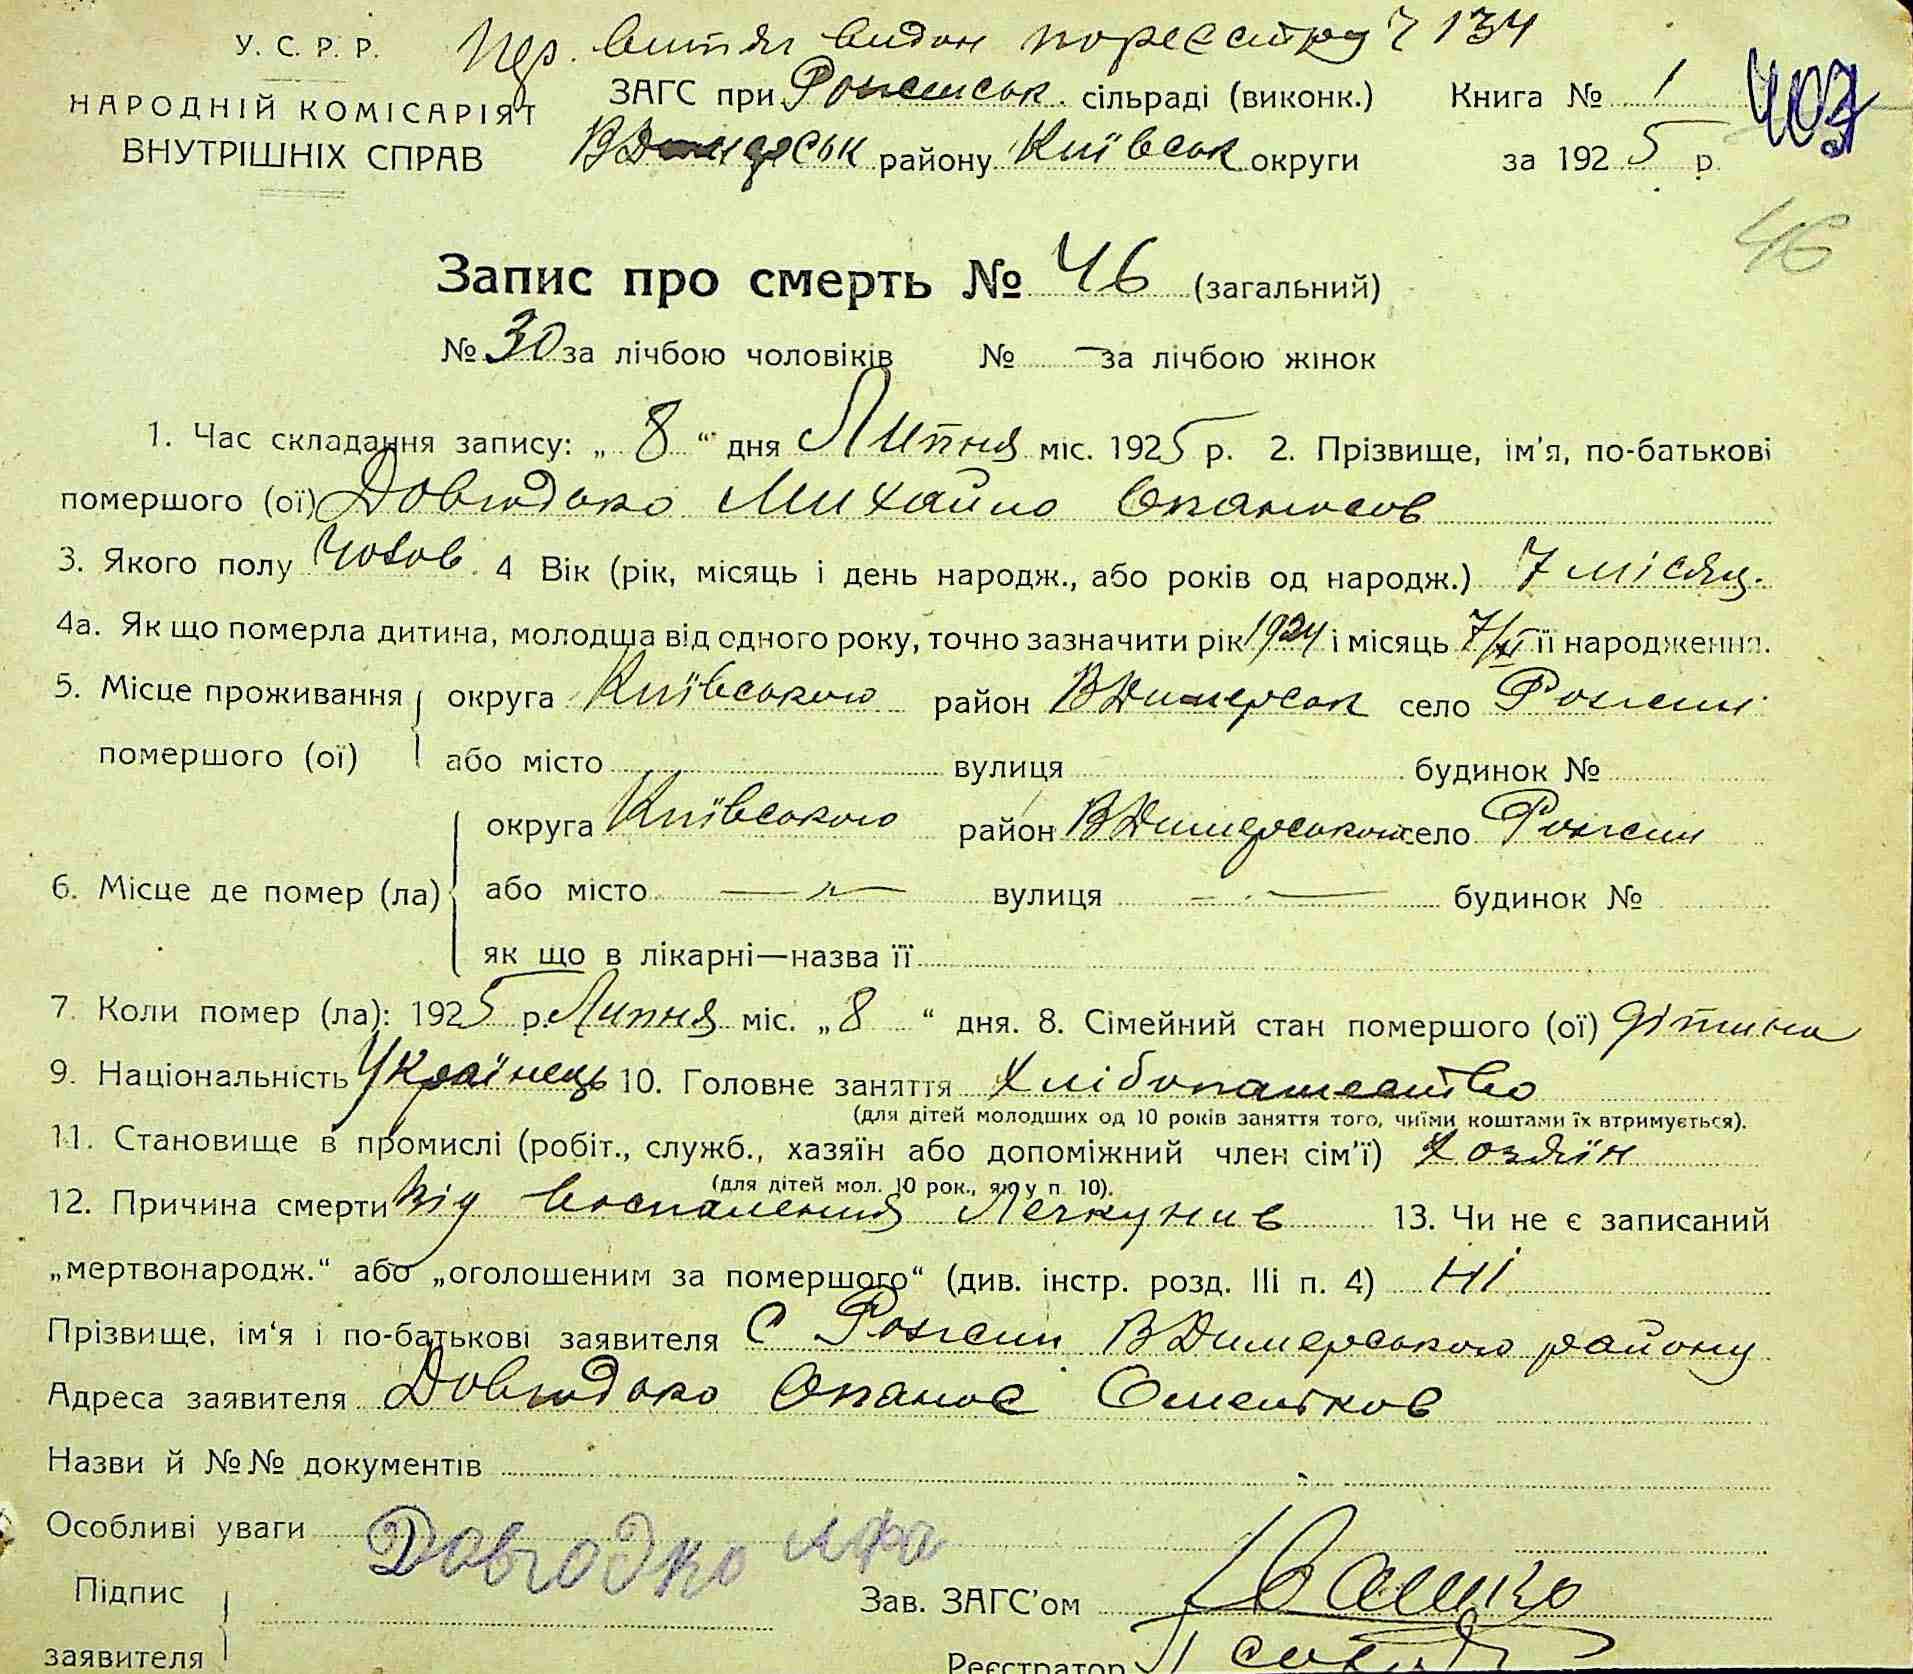 Пер. витяг видан по реєстру Ч 134
У. С. Р. Р.
НАРОДНІЙ КОМІСАРІЯТ
ВНУТРІШНІХ СПРАВ
ЗАГС при сільраді (виконк.) Книга № 1
району Київськ округи за 1925 р.
403
46
Запис про смерть № 46 (загальний)
№ 30 за лічбою чоловіків № — за лічбою жінок
1. Час складання запису: „ 8 “ дня Липня міс. 1925 р. 2. Прізвище, ім'я, по-батькові
помершого (ої) Михайло Опанасов
3. Якого полу Чолов. 4 Вік (рік, місяць і день народж., або років од народж.) 7 місяц.
4а. Як що померла дитина, молодша від одного року, точно зазначити рік 1924 і місяць 7/XI її народження.
5. Місце проживання округа Київського район ВДимерськ село Рожени
помершого (ої) або місто вулиця будинок №
округа Київського район ВДимерського село Рожени
6. Місце де помер (ла) або місто — „ — вулиця — будинок №
як що в лікарні—назва її
7. Коли помер (ла): 1925 р. Липня міс. „ 8 “ дня. 8. Сімейний стан помершого (ої) дітина
9. Національність Українець 10. Головне заняття хлібопашество
(для дітей молодших од 10 років заняття того, чиїми коштами їх втримується).
11. Становище в промислі (робіт., служб., хазяїн або допоміжний член сім'ї) хозяїн
(для дітей мол. 10 рок., як у п. 10).
12. Причина смерти Від воспаления Легкунив 13. Чи не є записаний
„мертвонародж.“ або „оголошеним за помершого“ (див. інстр. розд. III п. 4) Ні
Прізвище, ім'я і по-батькові заявителя С Рожени ВДимерського району
Адреса заявителя Опанас Омельков
Назви й №№ документів
Особливі уваги
Підпис Зав. ЗАГС'ом Івашко
заявителя Реєстратор